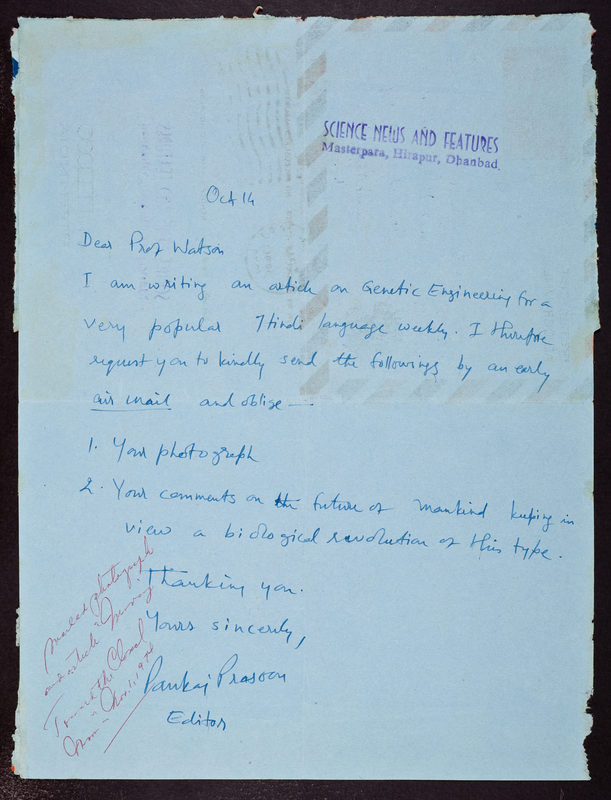 SCIENCE NEWS AND FEATURES
Masterpara, Hirapur, Dhanbad
Oct 14
Dear Prof Watson
I am writing an article on Genetic Engineering for a
very popular Hindi language weekly. I therefore
request you to kindly send the followings by an early
air mail and oblige —
1. Your photograph
2. Your comments on the future of mankind keeping in
view a biological revolution of this type.
Thanking you.
Yours sincerely,
Pankaj Prasoon
Editor
Mailed photograph
and article "Moving
Toward the Clonal
Man" Nov. 1, 1974